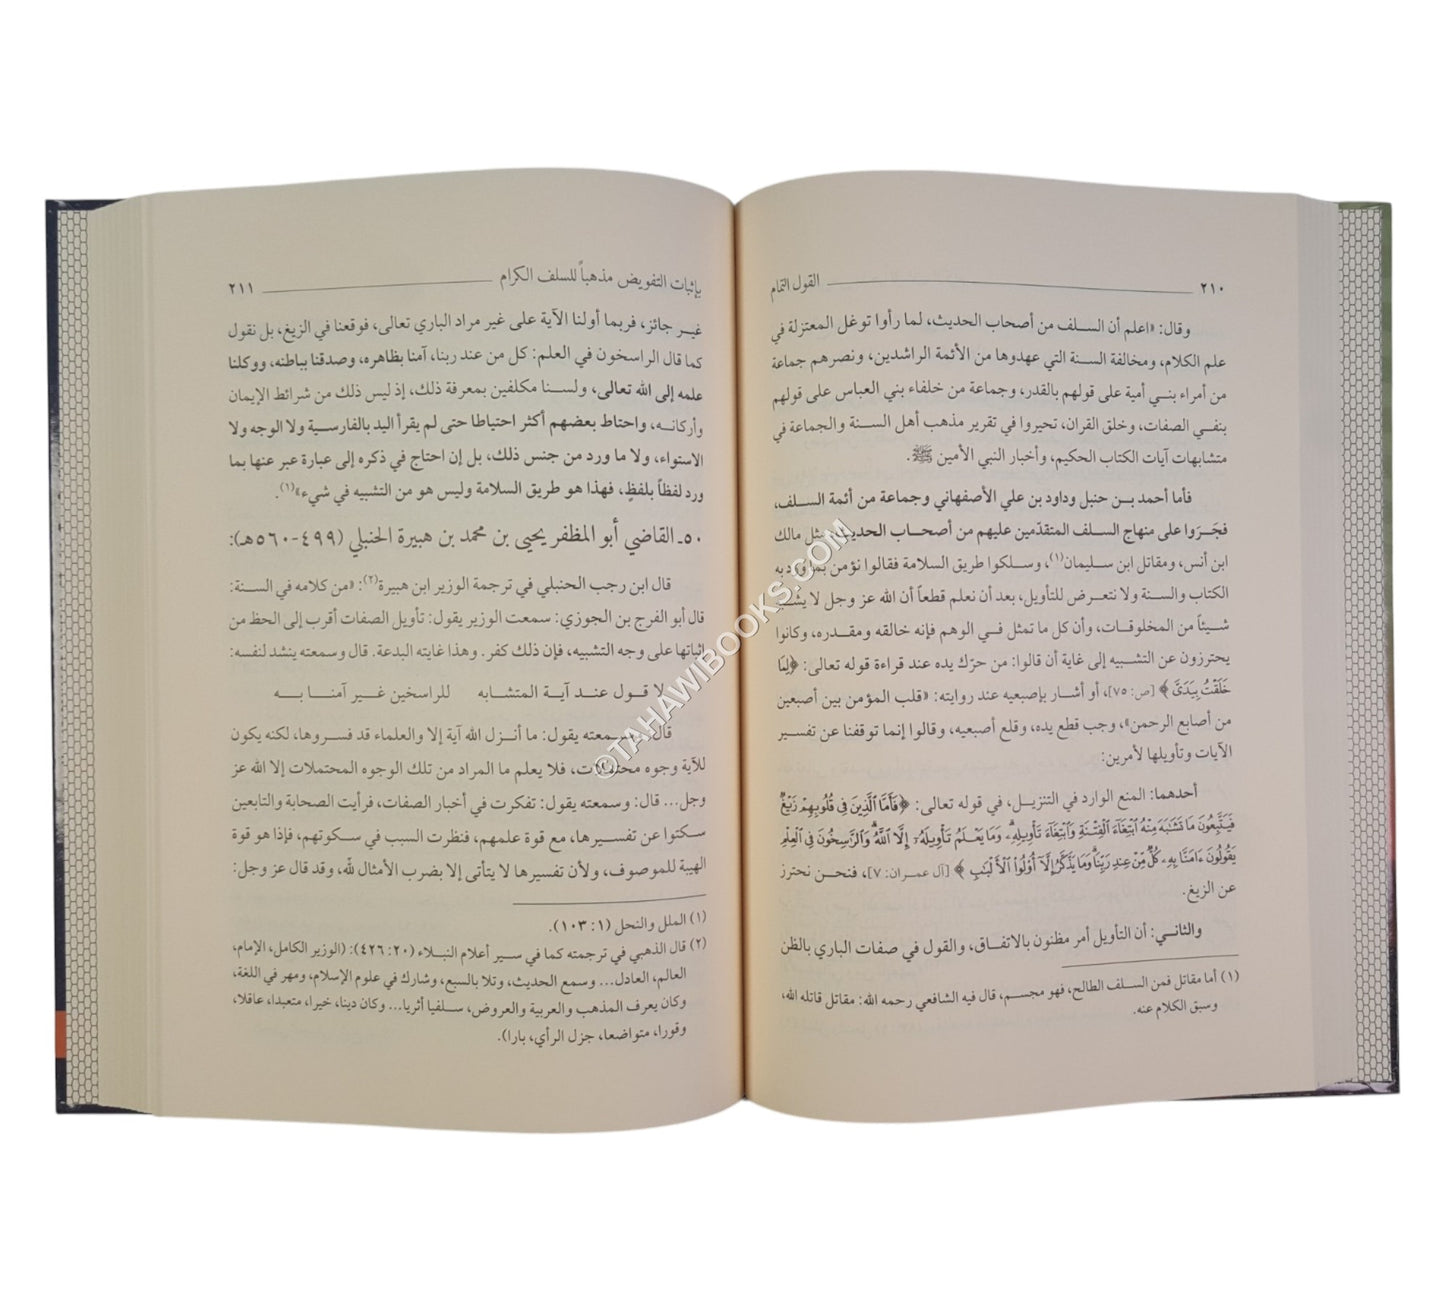 ٢١٠ القول التمام
وقال: «اعلم أن السلف من أصحاب الحديث، لما رأوا توغل المعتزلة في
علم الكلام، ومخالفة السنة التي عهدوها من الأئمة الراشدين، ونصرهم جماعة
من أمراء بني أمية على قولهم بالقدر، وجماعة من خلفاء بني العباس على قولهم
بنفي الصفات، وخلق القران، تحيروا في تقرير مذهب أهل السنة والجماعة في
متشابهات آيات الكتاب الحكيم، وأخبار النبي الأمين ﷺ.
فأما أحمد بن حنبل وداود بن علي الأصفهاني وجماعة من أئمة السلف،
فجَرَوا على منهاج السلف المتقدّمين عليهم من أصحاب الحديث، مثل مالك
ابن أنس، ومقاتل ابن سليمان(١)، وسلكوا طريق السلامة فقالوا نؤمن بما ورد به
الكتاب والسنة ولا نتعرض للتأويل، بعد أن نعلم قطعاً أن الله عز وجل لا يشبه
شيئاً من المخلوقات، وأن كل ما تمثل في الوهم فإنه خالقه ومقدره، وكانوا
يحترزون عن التشبيه إلى غاية أن قالوا: من حرّك يده عند قراءة قوله تعالى: ﴿لِمَا
خَلَقْتُ بِيَدَىَّ﴾ [ص: ٧٥]، أو أشار بإصبعيه عند روايته: «قلب المؤمن بين أصبعين
من أصابع الرحمن»، وجب قطع يده، وقلع أصبعيه، وقالوا إنما توقفنا عن تفسير
الآيات وتأويلها لأمرين:
أحدهما: المنع الوارد في التنزيل، في قوله تعالى: ﴿فَأَمَّا الَّذِينَ فِى قُلُوبِهِمْ زَيْغٌ
فَيَتَّبِعُونَ مَا تَشَٰبَهَ مِنْهُ ابْتِغَآءَ الْفِتْنَةِ وَابْتِغَآءَ تَأْوِيلِهِۦ وَمَا يَعْلَمُ تَأْوِيلَهُۥٓ إِلَّا اللَّهُ وَالرَّٰسِخُونَ فِى الْعِلْمِ
يَقُولُونَ ءَامَنَّا بِهِۦ كُلٌّ مِّنْ عِندِ رَبِّنَا وَمَا يَذَّكَّرُ إِلَّآ أُوْلُواْ الْأَلْبَٰبِ﴾ [آل عمران: ٧]، فنحن نحترز
عن الزيغ.
والثاني: أن التأويل أمر مظنون بالاتفاق، والقول في صفات الباري بالظن
(١) أما مقاتل فمن السلف الطالح، فهو مجسم، قال فيه الشافعي رحمه الله: مقاتل قاتله الله،
وسبق الكلام عنه.
بإثبات التفويض مذهباً للسلف الكرام ٢١١
غير جائز، فربما أولنا الآية على غير مراد الباري تعالى، فوقعنا في الزيغ، بل نقول
كما قال الراسخون في العلم: كل من عند ربنا، آمنا بظاهره، وصدقنا بباطنه، ووكلنا
علمه إلى الله تعالى، ولسنا مكلفين بمعرفة ذلك، إذ ليس ذلك من شرائط الإيمان
وأركانه، واحتاط بعضهم أكثر احتياطا حتى لم يقرأ اليد بالفارسية ولا الوجه ولا
الاستواء، ولا ما ورد من جنس ذلك، بل إن احتاج في ذكره إلى عبارة عبر عنها بما
ورد لفظاً بلفظٍ، فهذا هو طريق السلامة وليس هو من التشبيه في شيء»(١).
٥٠ـ القاضي أبو المظفر يحيى بن محمد بن هبيرة الحنبلي (٤٩٩-٥٦٠هـ):
قال ابن رجب الحنبلي في ترجمة الوزير ابن هبيرة(٢): «من كلامه في السنة:
قال أبو الفرج بن الجوزي: سمعت الوزير يقول: تأويل الصفات أقرب إلى الحظ من
إثباتها على وجه التشبيه، فإن ذلك كفر. وهذا غايته البدعة. قال وسمعته ينشد لنفسه:
لا قول عند آية المتشابه للراسخين غير آمنا به
قال: وسمعته يقول: ما أنزل الله آية إلا والعلماء قد فسروها، لكنه يكون
للآية وجوه محتملات، فلا يعلم ما المراد من تلك الوجوه المحتملات إلا الله عز
وجل... قال: وسمعته يقول: تفكرت في أخبار الصفات، فرأيت الصحابة والتابعين
سكتوا عن تفسيرها، مع قوة علمهم، فنظرت السبب في سكوتهم، فإذا هو قوة
الهيبة للموصوف، ولأن تفسيرها لا يتأتى إلا بضرب الأمثال لله، وقد قال عز وجل:
(١) الملل والنحل (١: ١٠٣).
(٢) قال الذهبي في ترجمته كما في سير أعلام النبلاء (٢٠: ٤٢٦): (الوزير الكامل، الإمام،
العالم، العادل... وسمع الحديث، وتلا بالسبع، وشارك في علوم الإسلام، ومهر في اللغة،
وكان يعرف المذهب والعربية والعروض، سلفيا أثريا... وكان دينا، خيرا، متعبدا، عاقلا،
وقورا، متواضعا، جزل الرأي، بارا).
©TAHAWIBOOKS.COM